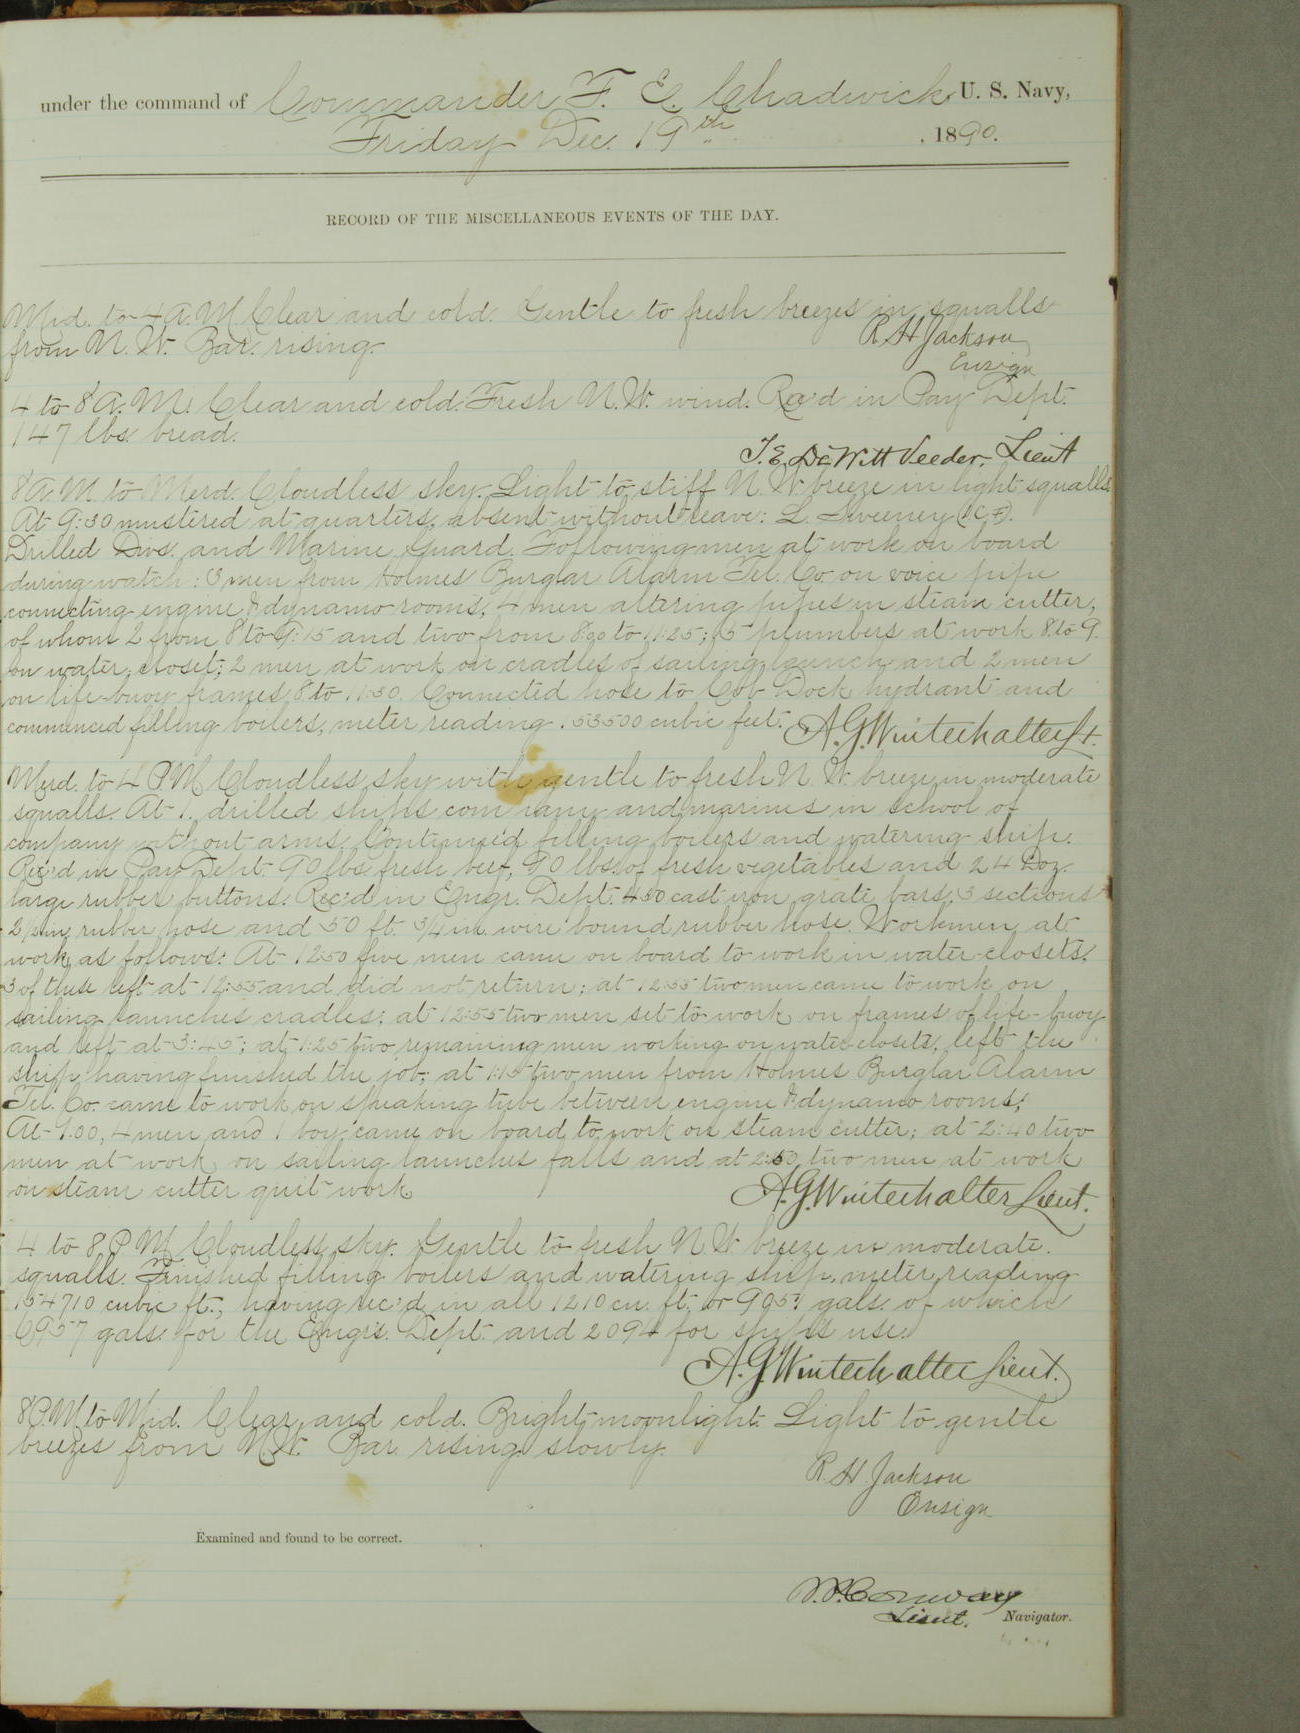 under the command of Commander F. E. Chadwick U. S. Navy,
Friday Dec. 19th , 1890.
RECORD OF THE MISCELLANEOUS EVENTS OF THE DAY.
Mid. to 4 A.M. Clear and cold. Gentle to fresh breezes in squalls
from N. W. Bar. rising.
R H Jackson
Ensign
4 to 8 A.M. Clear and cold. Fresh N.W. wind. Rec'd in Pay Dept.
147 lbs. bread.
T. E. DeWitt Veeder. Lieut
8 A.M. to Merd. Cloudless sky. Light to stiff N. W. breeze in light squalls.
At 9:30 mustered at quarters, absent without leave: L. Sweeney
Drilled Divs. and Marine Guard. Following men at work on board
during watch: 3 men from Holmes Burglar Alarm Tel. Co. on voice pipe
connecting engine & dynamo rooms, 4 men altering pipes in steam cutter,
of whom 2 from 8 to 9:15 and two from to 11:25; 5 plumbers at work 8 to 9
on water closet; 2 men at work on cradles of sailing launch and 2 men
on life-buoy frames, 8 to 11:30. Connected hose to Cob Dock hydrant and
commenced filling boilers, meter reading 53500 cubic feet. A.G. Winterhalter Lt.
Merd. to 4 P.M. Cloudless sky with gentle to fresh N. W. breeze in moderate
squalls. At 1. drilled ship's company and marines in school of
company without arms. Continued filling boilers and watering ship.
Rec'd in Pay Dept. 90 lbs. fresh beef, 90 lbs. of fresh vegetables and 24 Doz.
large rubber buttons. Rec'd in Engr. Dept. 450 cast iron grate bars, 3 sections
2 1/2 in. rubber hose and 50 ft. 3/4 in. wire bound rubber hose. Workmen at
work as follows: At 12:50 five men came on board to work in water-closets,
3 of these left at 12:55 and did not return; at 12:55 two men came to work on
sailing launches cradles; at 12:55 two men set to work on frames of life-buoy
and left at 3:45; at 1:25 two remaining men working on water closets, left the
ship, having finished the job; at 1:15 two men from Holmes Burglar Alarm
Tel. Co. came to work on speaking tube between engine & dynamo rooms;
At 1.00, 4 men and 1 boy came on board to work on steam cutter; at 2:40 two
men at work on sailing launches falls and at 2:50 two men at work
on steam cutter quit work
A.G. Winterhalter Lieut.
4 to 8 P.M. Cloudless sky. Gentle to fresh N.W. breeze in moderate
squalls. Finished filling boilers and watering ship, meter reading
154710 cubic ft., having rec'd in all 1210 cu. ft. or 9051 gals. of which
6957 gals. for the Engr's. Dept. and 2094 for ship's use.
A.G. Winterhalter Lieut.
8 P.M. to Mid. Clear and cold. Bright moonlight. Light to gentle
breezes from N.W. Bar. rising slowly.
R. H. Jackson
Ensign
Examined and found to be correct.
W. P. Conway
Lieut. Navigator.